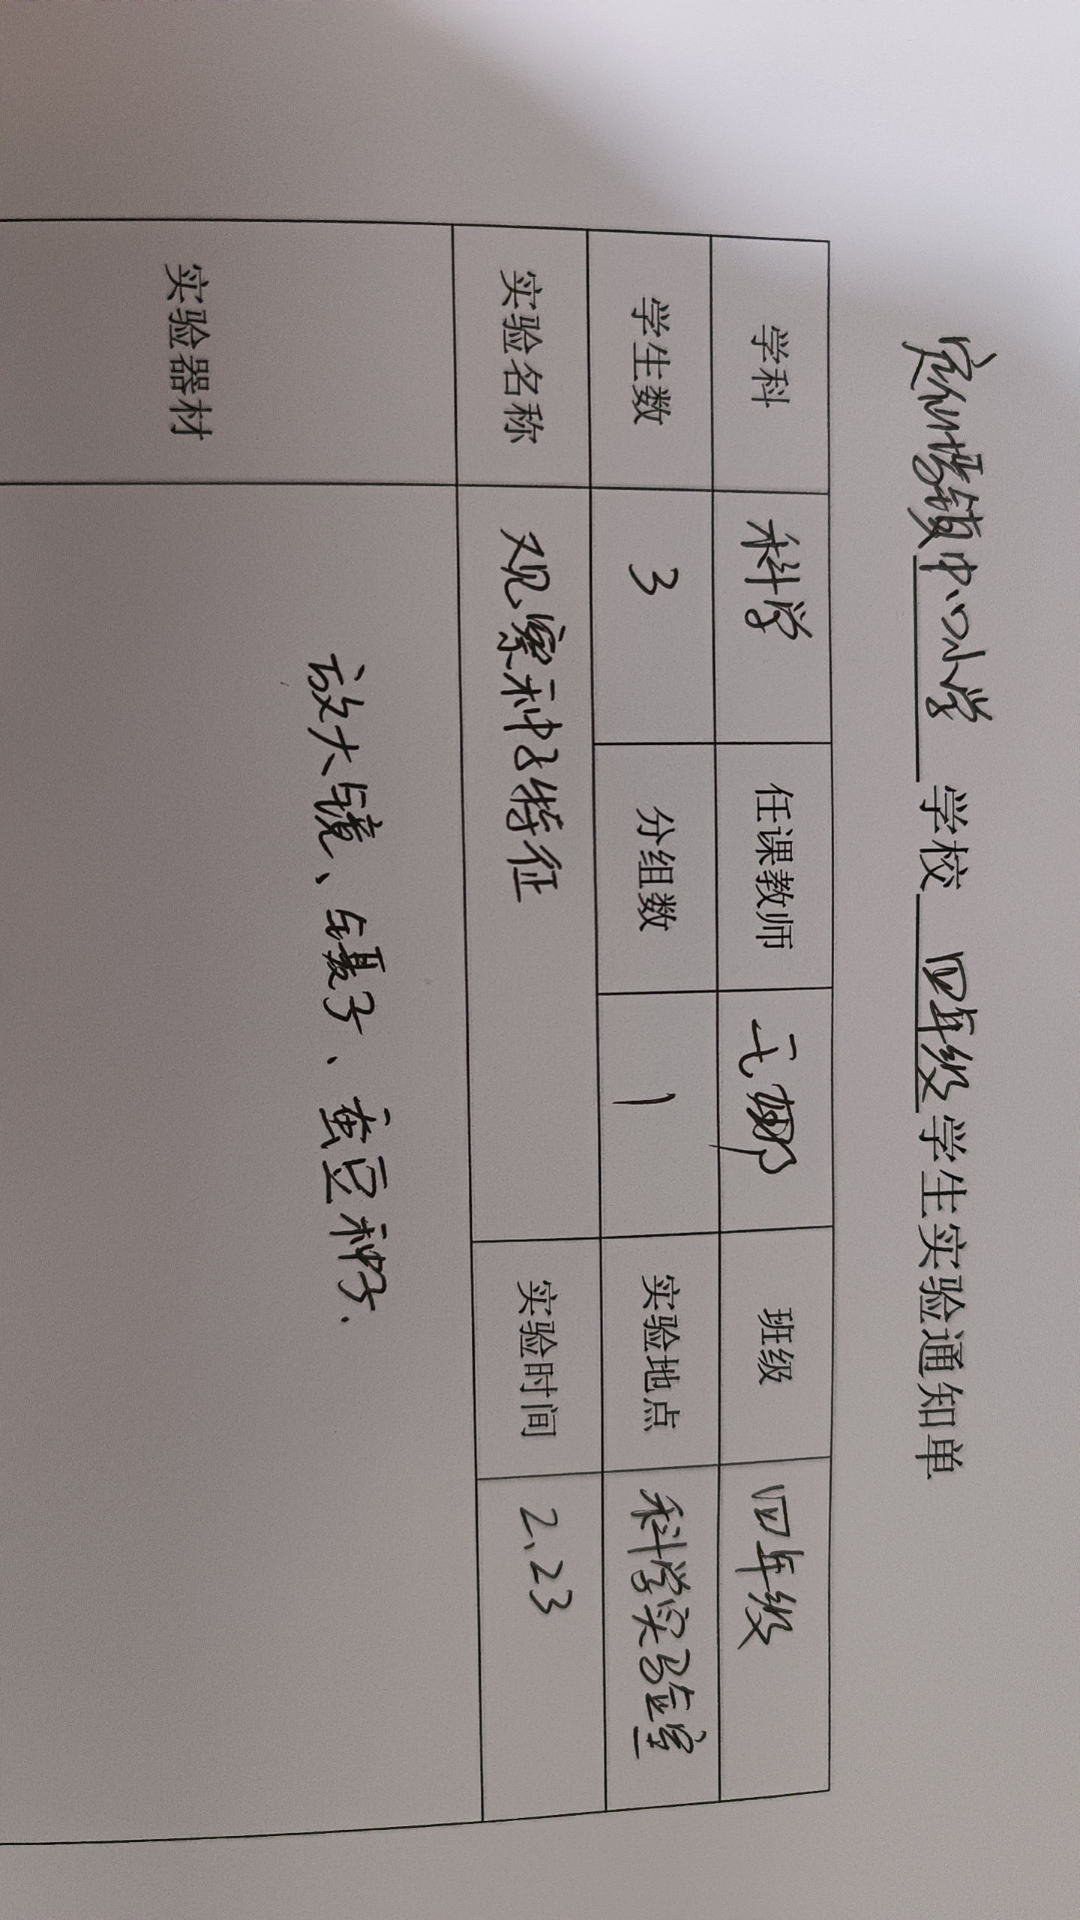 镇中心小学 学校 四年级 学生实验通知单
学科 科学 任课教师 班级 四年级
学生数 3 分组数 1 实验地点 科学实验室
实验名称 观察种子特征 实验时间 2.23
实验器材 放大镜、镊子、蚕豆种子.